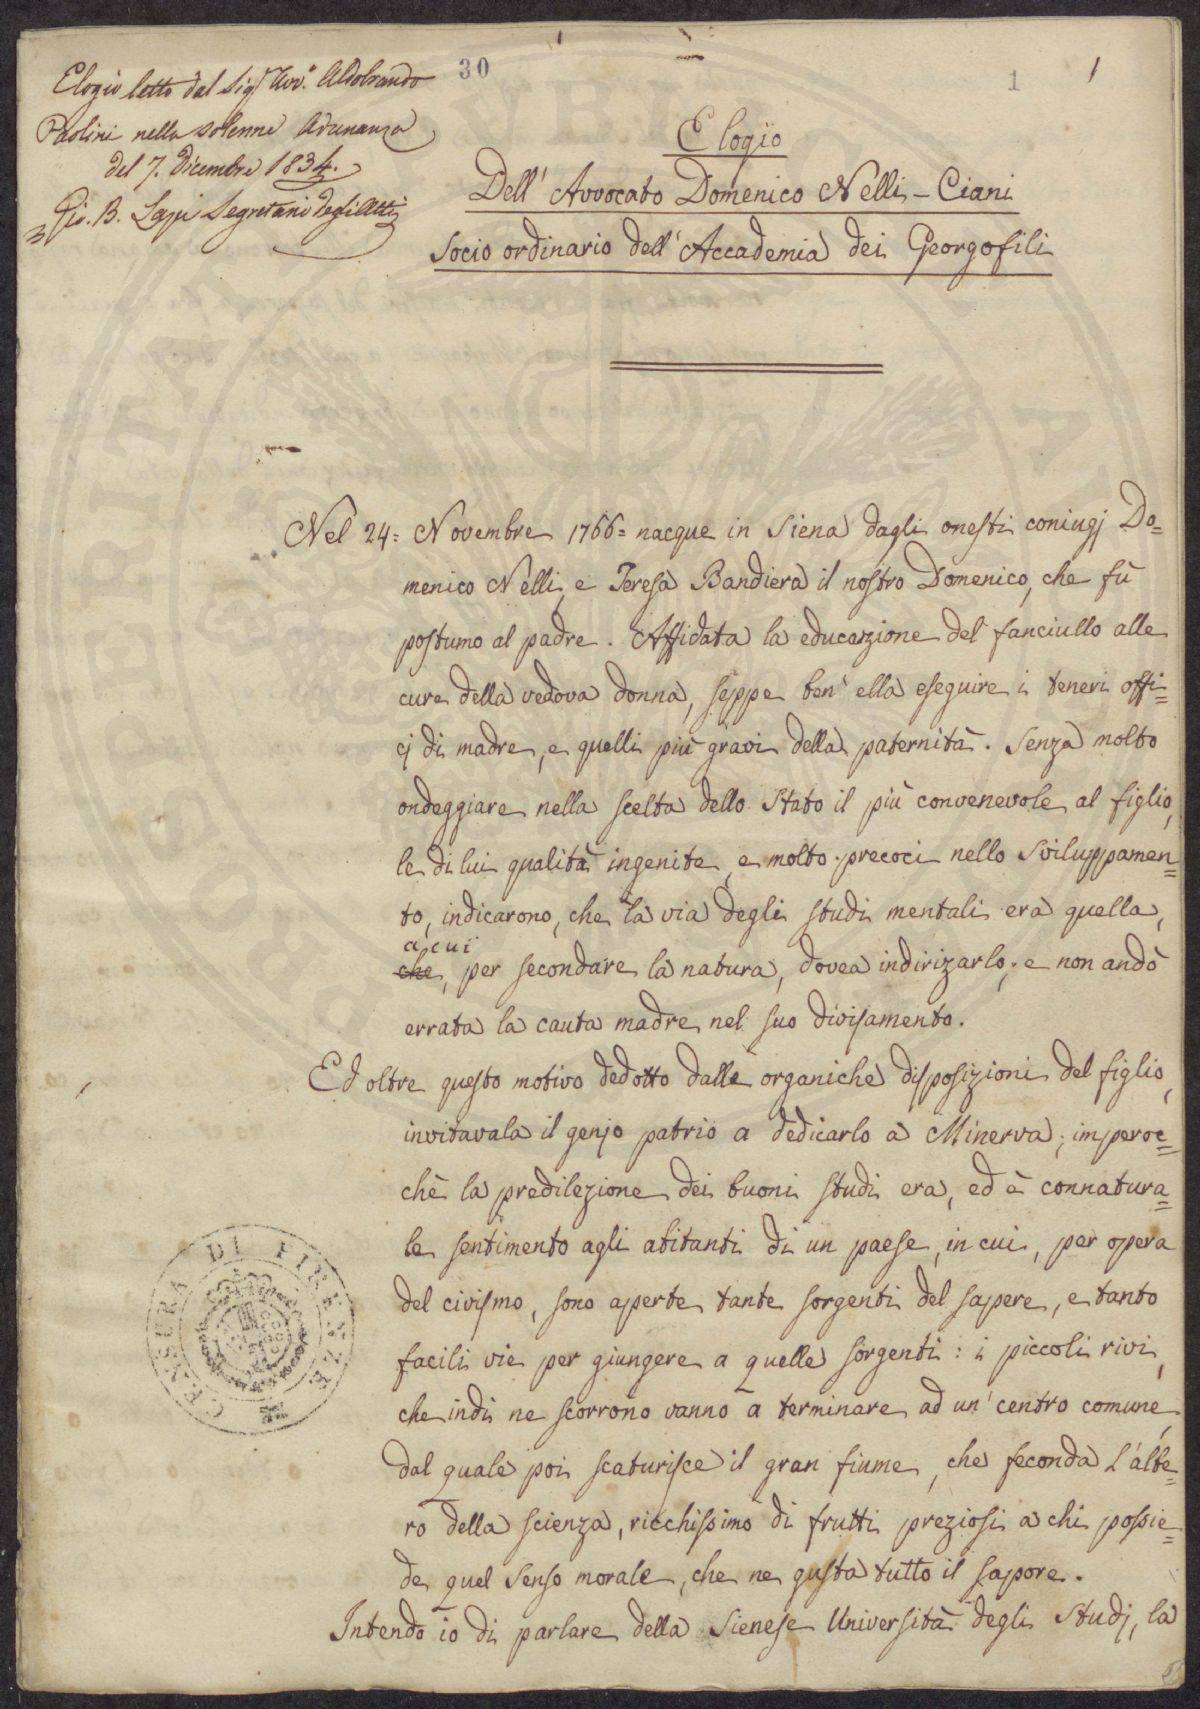 30
1
1
Elogio letto dal Sigr Avv.o Aldobrando
Paolini nella solenne Adunanza
del 7. Dicembre 1834.
Gio. B. Lapi Segretario degli Atti
Elogio
Dell' Avvocato Domenico Nelli-Ciani
Socio ordinario dell'Accademia dei Georgofili
Nel 24= Novembre 1766= nacque in Siena dagli onesti coniugj Do=
menico Nelli, e Teresa Bandiera il nostro Domenico, che fù
postumo al padre. Affidata la educazione del fanciullo alle
cure della vedova donna, seppe ben' ella eseguire i teneri offi=
cj di madre, e quelli più gravi della paternità. Senza molto
ondeggiare nella scelta dello Stato il più convenevole al figlio,
le di lui qualità ingenite, e molto precoci nello sviluppamen=
to, indicarono, che la via degli studi mentali era quella,
a cui
che, per secondare la natura, dovea indirizarlo; e non andò
errata la cauta madre nel suo divisamento.
Ed oltre questo motivo dedotto dalle organiche disposizioni del figlio,
invitavala il genjo patrio a dedicarlo a Minerva; imperoc=
chè la predilezione dei buoni studi era, ed è connatura=
le sentimento agli abitanti di un paese, in cui, per opera
del civismo, sono aperte tante sorgenti del sapere, e tanto
facili vie per giungere a quelle sorgenti: i piccoli rivi,
che indi ne scorrono vanno a terminare ad un' centro comune,
dal quale poi scaturisce il gran fiume, che feconda l'albe=
ro della scienza, ricchissimo di frutti preziosi a chi possie=
de quel senso morale, che ne gusta tutto il sapore.
Intendo io di parlare della Sienese Università degli Studj, la
CENSURA DI FIRENZE